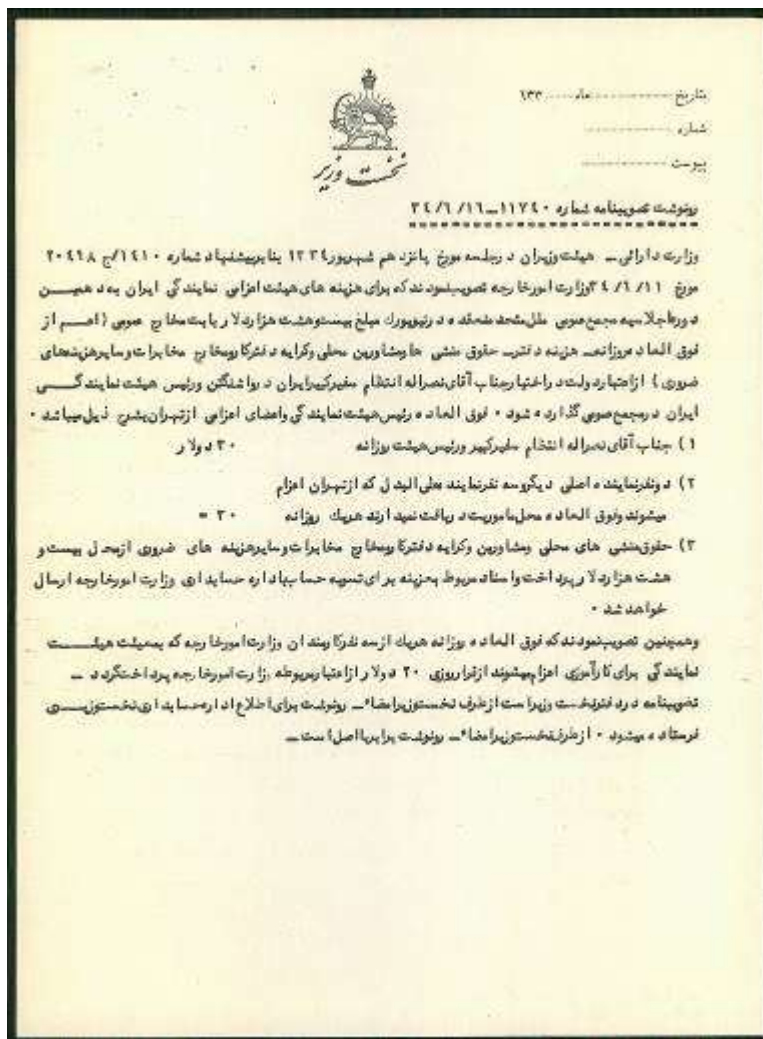 بتاریخ ............ ماه ...... ۱۳۳
شماره ............
پیوست ............
نخست وزیر
رونوشت تصویبنامه شماره ۱۱۷۴۰ــ۱۶/ ۶/ ۳۴
وزارت دارائی ــ هیئت وزیران در جلسه مورخ پانزدهم شهریور ۱۳۳۴ بنابر پیشنهاد شماره ۱۴۱۰/ج ۲۰۴۱۸
مورخ ۱۱/ ۶/ ۳۴ وزارت امور خارجه تصویب نمودند که برای هزینه های هیئت اعزامی نمایندگی ایران به دهمین
دوره اجلاسیه مجمع عمومی ملل متحد منعقده در نیویورک مبلغ بیست و هشت هزار دلار بابت مخارج عمومی (اعم از
فوق العاده روزانه ــ هزینه دفتر ــ حقوق منشی ها و مشاورین محلی و کرایه دفتر کار و مخارج مخابرات و سایر هزینه های
ضروری) از اعتبار دولت در اختیار جناب آقای نصراله انتظام سفیر کبیر ایران در واشنگتن و رئیس هیئت نمایندگی
ایران در مجمع عمومی گذارده شود ۰ فوق العاده رئیس هیئت نمایندگی و اعضای اعزامی از تهران بشرح ذیل میباشد ۰
۱) جناب آقای نصراله انتظام سفیر کبیر و رئیس هیئت روزانه ۳۰ دولار
۲) دو نفر نماینده اصلی دیگر و سه نفر نماینده علی البدل که از تهران اعزام
میشوند و فوق العاده محل ماموریت دریافت نمیدارند هریک روزانه ۳۰ =
۳) حقوق منشی های محلی و مشاورین و کرایه دفتر کار و مخارج مخابرات و سایر هزینه های ضروری از محل بیست و
هشت هزار دلار پرداخت و اسناد مربوط بهزینه برای تسویه حساب باداره حسابداری وزارت امور خارجه ارسال
خواهد شد ۰
و همچنین تصویب نمودند که فوق العاده روزانه هریک از سه نفر کارمندان وزارت امور خارجه که بمعیت هیئت
نمایندگی برای کارآموزی اعزام میشوند از قرار روزی ۲۰ دولار از اعتبار مربوطه وزارت امور خارجه پرداخت گردد ــ
تصویبنامه در دفتر نخست وزیر است از طرف نخست وزیر امضاء ــ رونوشت برای اطلاع اداره حسابداری نخست وزیری
فرستاده میشود ۰ از طرف نخست وزیر امضاء ــ رونوشت برابر با اصل است ــ